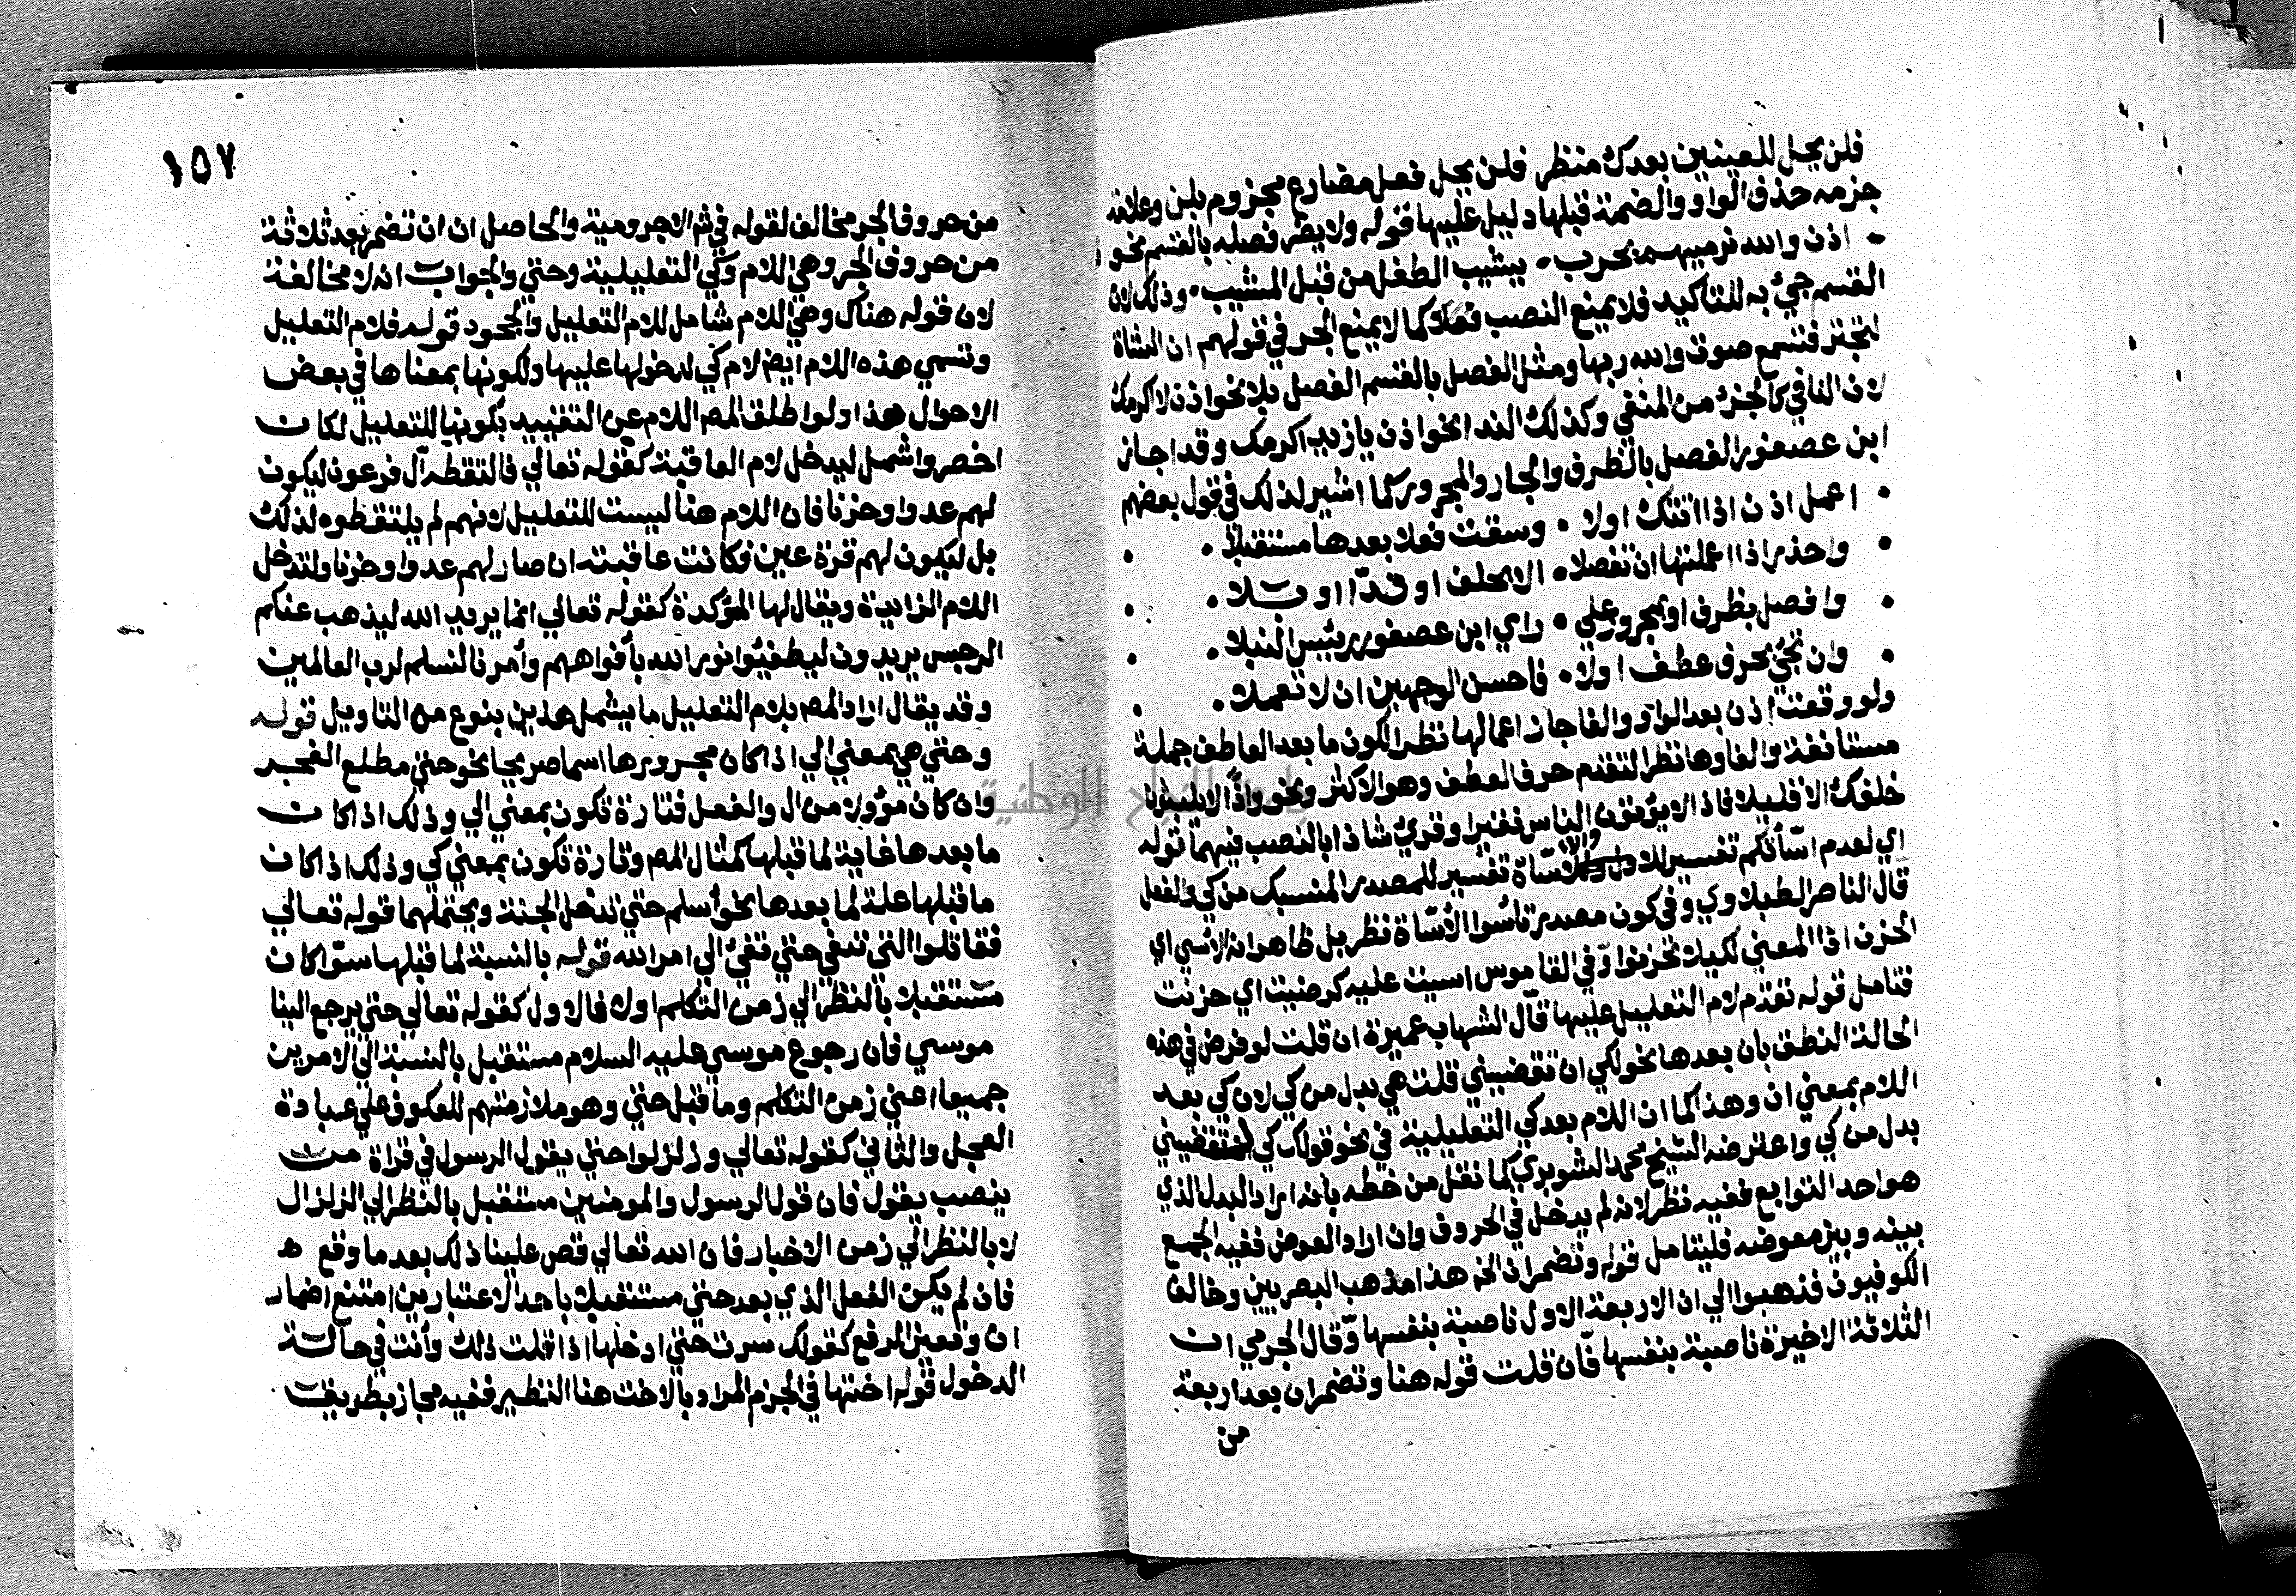 فلن يحل للعينين بعدك منظر فلن يحل فعل مضارع مجزوم بلن وعلامة
جزمه حذف الواو والضمة قبلها دليل عليها قوله ولا يضر فصله بالقسم نحو
اذن والله نرميهم بحرب • يشيب الطفل من قبل المشيب • وذلك لان
القسم جيء به للتاكيد فلا يمنع النصب هنا كما لا يمنع الجر في قولهم ان الشاة
لتجتر فتسمع صوت والله ربها ومثل الفصل بالقسم الفصل بلا نحو اذن لا اكرمك
لان النافي كالجزء من المنفي وكذلك النداء نحو اذن يا زيد اكرمك وقد اجاز
ابن عصفور الفصل بالظرف والجار والمجرور كما اشير لذلك في قول بعضهم
• اعمل اذن اذا اتتك اولا • وسقت فعلا بعدها مستقبلا •
• واحذر اذا اعملتها ان تفصلا • الا بحلف او ندا او بلا •
• وافصل بظرف او بمجرور علي • راي ابن عصفور رئيس النبلا •
• وان تجئ بحرف عطف اولا • فاحسن الوجهين ان لا تعملا •
ولو وقعت اذن بعد الواو والفا جاز اعمالها نظرا لكون ما بعد العاطف جملة
مستانفة والغاوها نظرا لتقدم حرف العطف وهو الاكثر ونحو واذا لا يلبثون
خلفك الا قليلا فاذا لا يؤتون الناس نقيرا وقرئ شاذا بالنصب فيهما قوله
اي لعدم اسأتكم تفسير للاول والاساة تفسير للمصدر المنسبك من كي والفعل
قال الناصر الطبلاوي وفي كون مصدر تأسوا الأساة نظر بل ظاهر انه الاسي اي
الحزن اذ المعني لكيلا تحزنوا وفي القاموس اسيت عليه كرضيت اي حزنت
فتامل قوله تقدم لام التعليل عليها قال الشهاب عميرة ان قلت لو فرض في هذه
الحالة النطق بان بعدها نحو لكي ان تقضيني قلت هي بدل من كي لان كي بعد
اللام بمعني ان وهذا كما ان اللام بعد كي التعليلية في نحو قولك كي لتقضيني
بدل من كي واعترضه الشيخ محمد الشوبري كما نقل من خطه بانه ان اراد البدل الذي
هو احد التوابع ففيه نظر لانه لم يدخل في الحروف وان اراد العوض ففيه الجمع
بينه وبين معوضه فليتامل قوله وتضمر ان الخ هذا مذهب البصريين وخالف
الكوفيون فذهبوا الي ان الاربعة الاول ناصبة بنفسها وقال الجرمي ان
الثلاثة الاخيرة ناصبة بنفسها فان قلت قوله هنا وتضمر ان بعد اربعة
من
١٥٧
من حروف الجر مخالف لقوله في ش الاجرومية والحاصل ان ان تضمر بعد ثلاثة
من حروف الجر وهي اللام وكي التعليلية وحتي والجواب انه لا مخالفة
لان قوله هناك وهي اللام شامل للام التعليل والجحود قوله فلام التعليل
وتسمي هذه اللام ايض لام كي لدخولها عليها ولكونها بمعناها في بعض
الاحوال هذا ولو اطلق المص اللام عن التقييد بكونها للتعليل لكان
اخصر واشمل ليدخل لام العاقبة كقوله تعالي فالتقطه آل فرعون ليكون
لهم عدوا وحزنا فان اللام هنا ليست للتعليل لانهم لم يلتقطوه لذلك
بل ليكون لهم قرة عين فكانت عاقبته ان صار لهم عدوا وحزنا ولتدخل
اللام الزايدة ويقال لها المؤكدة كقوله تعالي انما يريد الله ليذهب عنكم
الرجس يريدون ليطفئوا نور الله بأفواههم وأمرنا لنسلم لرب العالمين
وقد يقال اراد المص بلام التعليل ما يشمل هذين بنوع من التاويل قوله
وحتي هي بمعني الي اذا كان مجرورها اسما صريحا نحو حتي مطلع الفجر
وان كان مؤولا من ال والفعل فتارة تكون بمعني الي وذلك اذا كان
ما بعدها غاية لما قبلها كمثال المص وتارة تكون بمعني كي وذلك اذا كان
ما قبلها علة لما بعدها نحو أسلم حتي تدخل الجنة ويحتملهما قوله تعالي
فقاتلوا التي تبغي حتي تفيء الي امر الله قوله بالنسبة لما قبلها سوا كان
مستقبلا بالنظر الي زمن التكلم اولا فالاول كقوله تعالي حتي يرجع الينا
موسي فان رجوع موسي عليه السلام مستقبل بالنسبة الي الامرين
جميعا اعني زمن التكلم وما قبل حتي وهو ملازمتهم للعكوف علي عبادة
العجل والثاني كقوله تعالي وزلزلوا حتي يقول الرسول في قراة من
ينصب يقول فان قول الرسول والمومنين مستقبل بالنظر الي الزلزال
لا بالنظر الي زمن الاخبار فان الله تعالي قص علينا ذلك بعد ما وقع ه
فان لم يكن الفعل الذي بعد حتي مستقبلا باحد الاعتبارين امتنع اضمار
ان وتعين الرفع كقولك سرت حتي ادخلها اذا قلت ذلك وأنت في حالة
الدخول قوله اختها في الجزم المراد بالاخت هنا النظير ففيه مجاز بطريق